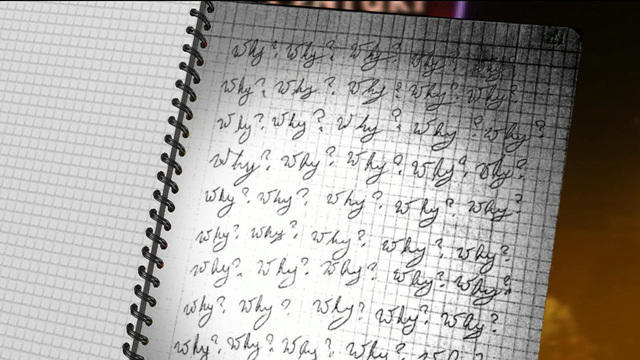 Why? Why? Why? Why? Why?
Why? Why? Why? Why? Why?
Why? Why? Why? Why? Why?
Why? Why? Why? Why? Why?
Why? Why? Why? Why? Why?
Why? Why? Why? Why? Why?
Why? Why? Why? Why? Why?
Why? Why? Why? Why? Why?
Why? Why? Why? Why? Why?